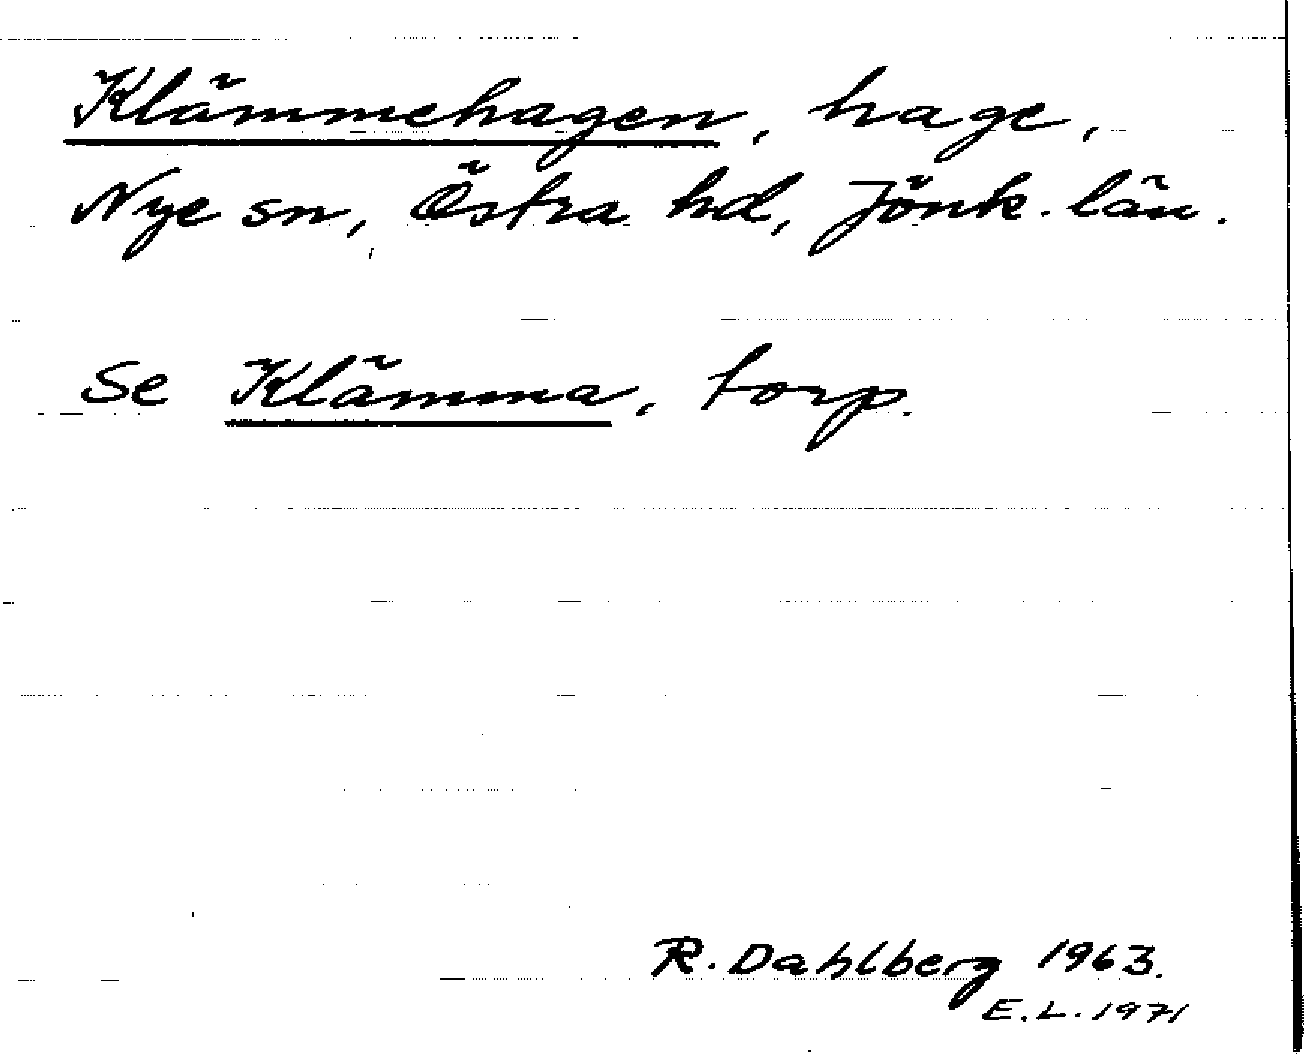 Klämmehagen, hage,
Nye sn, Östra hd, Jönk. län.
Se Klämma, torp.
R. Dahlberg 1963.
E.L. 1971